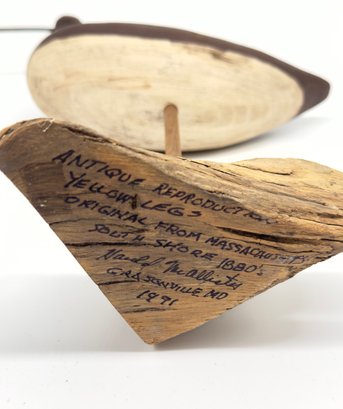 ANTIQUE REPRODUCTION
YELLOW LEGS
ORIGINAL FROM MASSACHUSETTS
SOUTH SHORE 1880's
McAllister
MD
1991